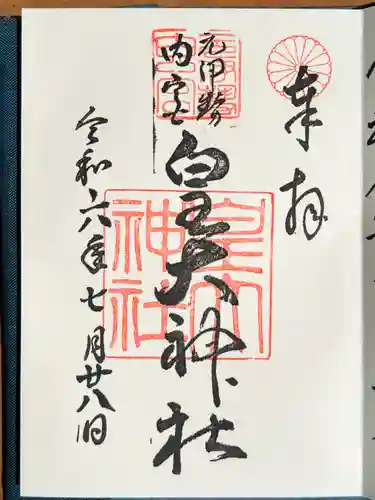 奉拝
元伊勢
内宮
皇大神社
皇大
神社
令和六年七月廿八日